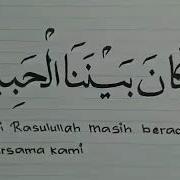 كان بيننا الحبي
i Rasulullah masih berad
rsama kami